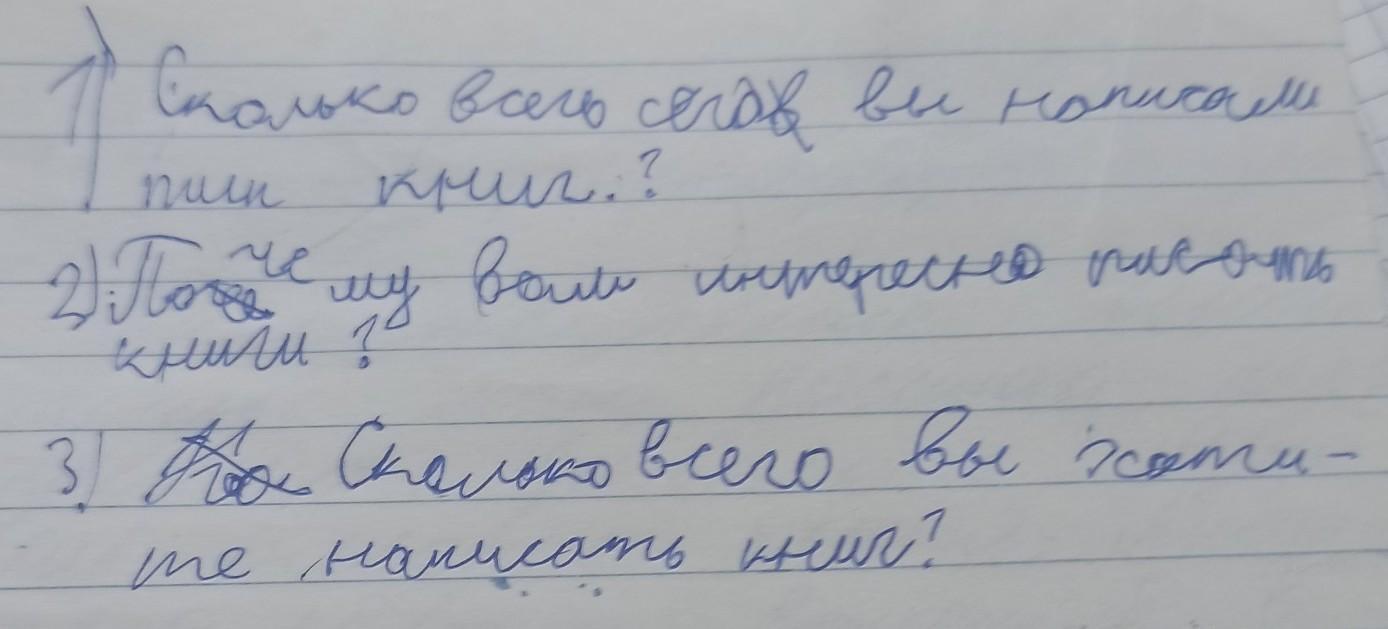 1) Сколько всего вы написали
книг.?
2) Почему вам интересно писать
книги?
3) Сколько всего вы хоти-
те написать книг?